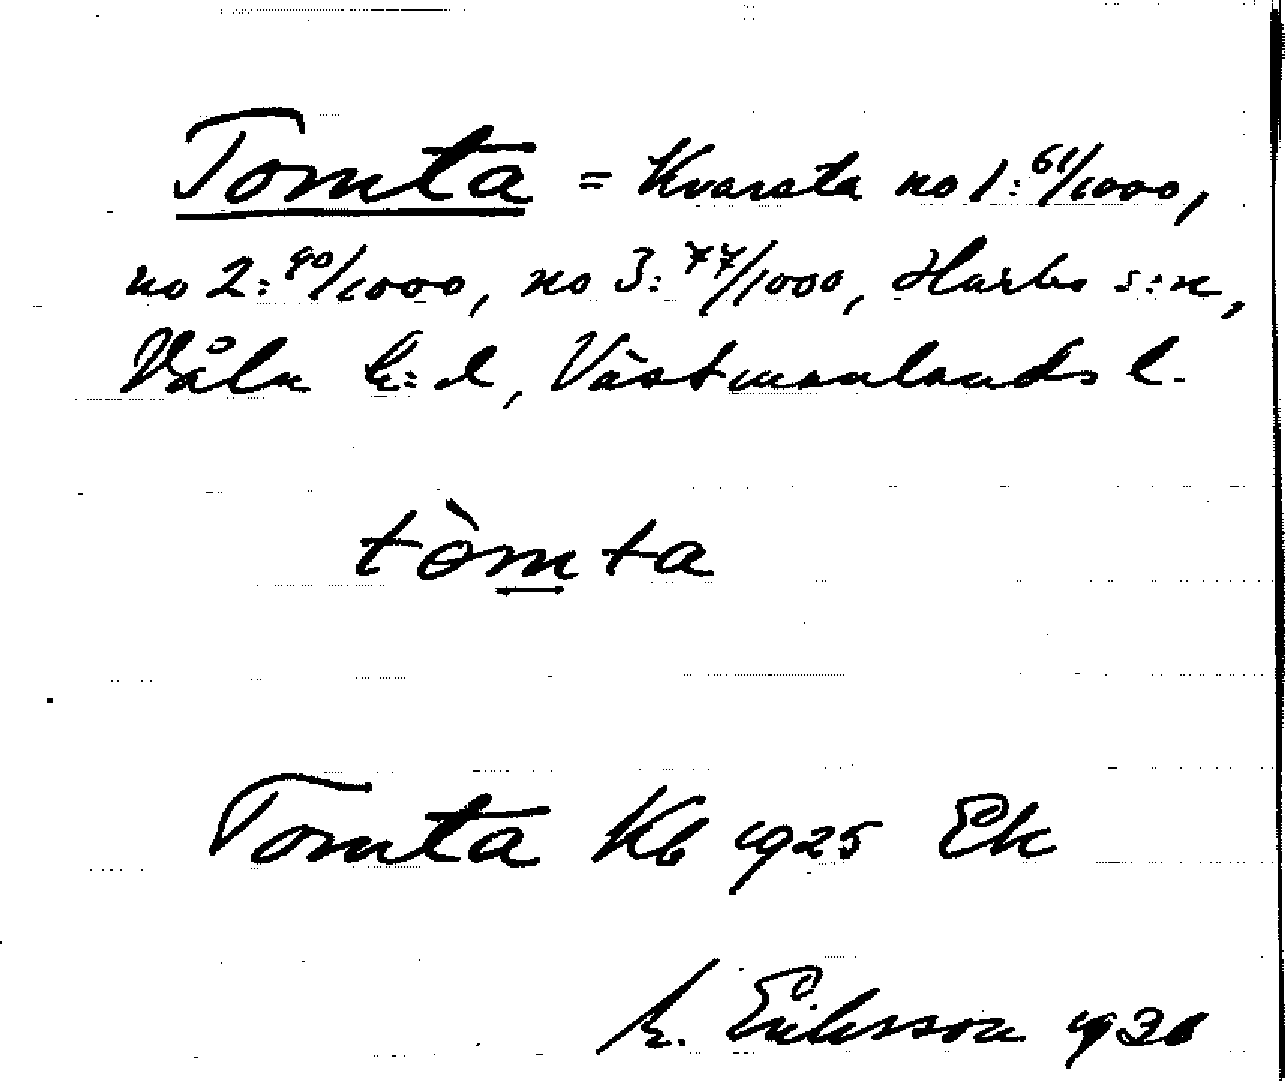 Tomta = Kvarsta no 1:61/1000,
no 2:90/1000, no 3:77/1000, Harbo s:n,
Våla h:d, Västmanlands l.
tòmta
Tomta Kb 1925 Ek
Eriksson 1930